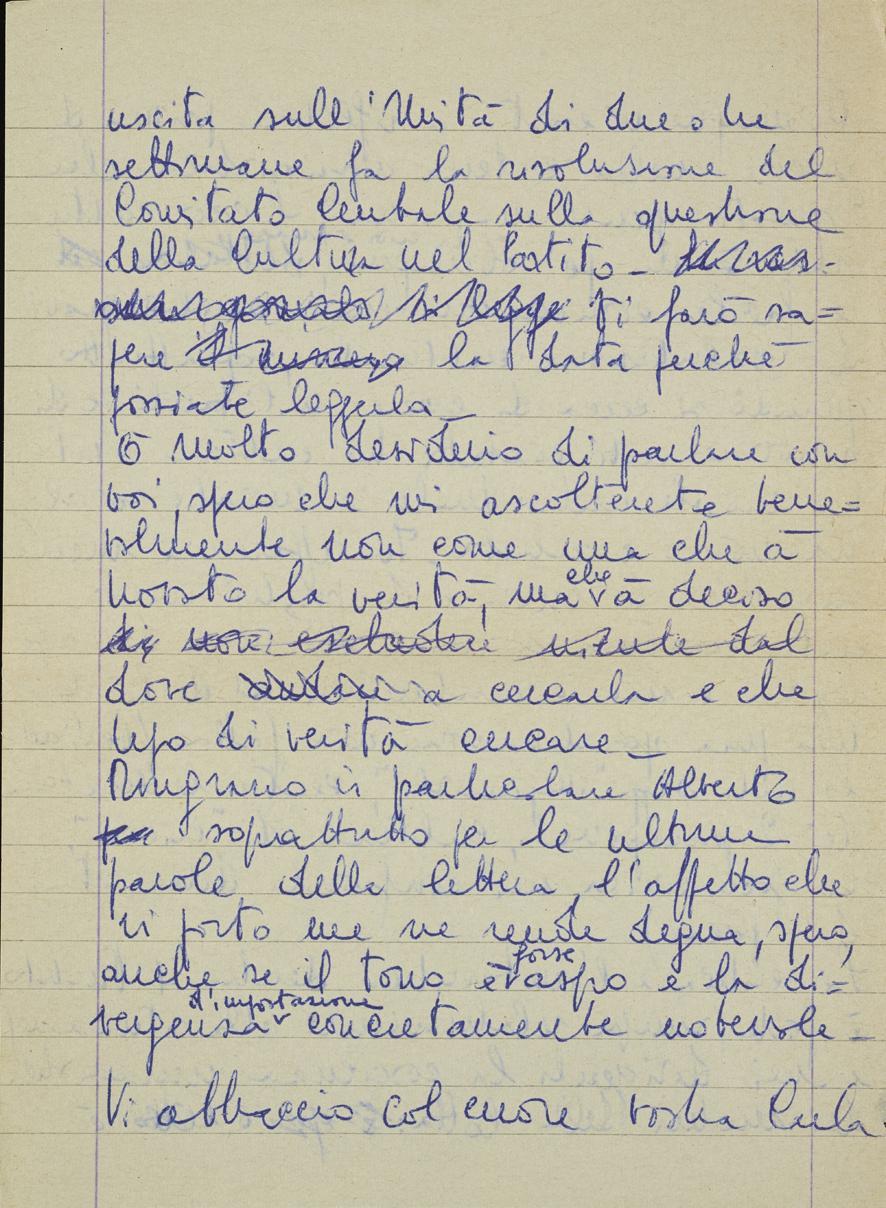 uscita sull'Unità di due o tre
settimane fa la risoluzione del
Comitato Centrale sulla questione
della Cultura nel Partito_
Vi farò sa=
pere la data perché
possiate leggerla_
Ò molto desiderio di parlare con
voi, spero che mi ascolterete bene=
volmente non come una che à
trovato la verità, ma che à deciso
dove a cercarla e che
tipo di verità cercare_
Ringrazio in particolare Alberto
soprattutto per le ultime
parole della lettera, l'affetto che
vi porto me ne rende degna, spero,
anche se il tono è forse aspro e la di=
vergenza d'impostazione concretamente notevole_
Vi abbraccio col cuore vostra